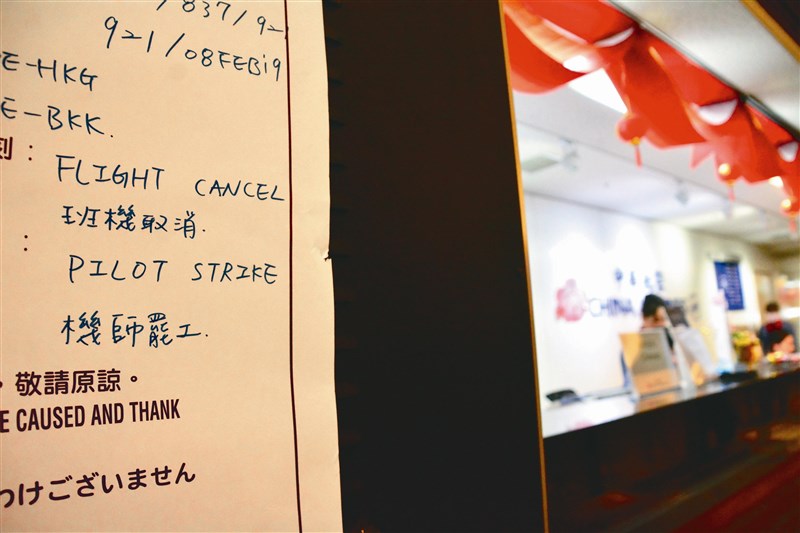 /837/92
921/08FEB19
E-HKG
E-BKK.
刻：
FLIGHT CANCEL
班機取消.
：
PILOT STRIKE
機師罷工.
，敬請原諒。
E CAUSED AND THANK
わけございません
CHINA